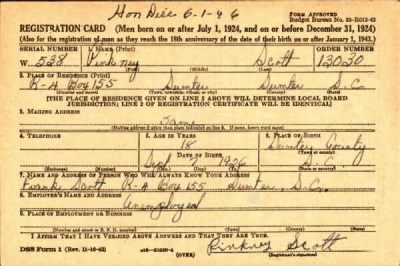 Hon Disc 6-1-46
FORM APPROVED
Budget Bureau No. 33-R012-42
REGISTRATION CARD (Men born on or after July 1, 1924, and on or before December 31, 1924)
(Also for the registration of men as they reach the 18th anniversary of the date of their birth on or after January 1, 1943.)
SERIAL NUMBER 1. NAME (Print) ORDER NUMBER
W 538 Pinkney Scott 13030
(First) (Middle) (Last)
2. PLACE OF RESIDENCE (Print)
R-4 Box 155 Sumter Sumter S.C.
(Number and street) (Town, township, village, or city) (County) (State)
[THE PLACE OF RESIDENCE GIVEN ON LINE 2 ABOVE WILL DETERMINE LOCAL BOARD
JURISDICTION; LINE 2 OF REGISTRATION CERTIFICATE WILL BE IDENTICAL]
3. MAILING ADDRESS
Same
[Mailing address if other than place indicated on line 2. If same, insert word same]
4. TELEPHONE 5. AGE IN YEARS 6. PLACE OF BIRTH
18 Sumter County
DATE OF BIRTH (Town or county)
Sept 7 1926 S.C.
(Exchange) (Number) (Mo.) (Day) (Yr.) (State or country)
7. NAME AND ADDRESS OF PERSON WHO WILL ALWAYS KNOW YOUR ADDRESS
Frank Scott R-4 Box 155 Sumter, S.C.
8. EMPLOYER'S NAME AND ADDRESS
Unemployed
9. PLACE OF EMPLOYMENT OR BUSINESS
(Number and street or R. F. D. number) (Town) (County) (State)
I AFFIRM THAT I HAVE VERIFIED ABOVE ANSWERS AND THAT THEY ARE TRUE.
Pinkney Scott
DSS Form 1 (Rev. 11-16-42) (OVER) (Registrant's signature)